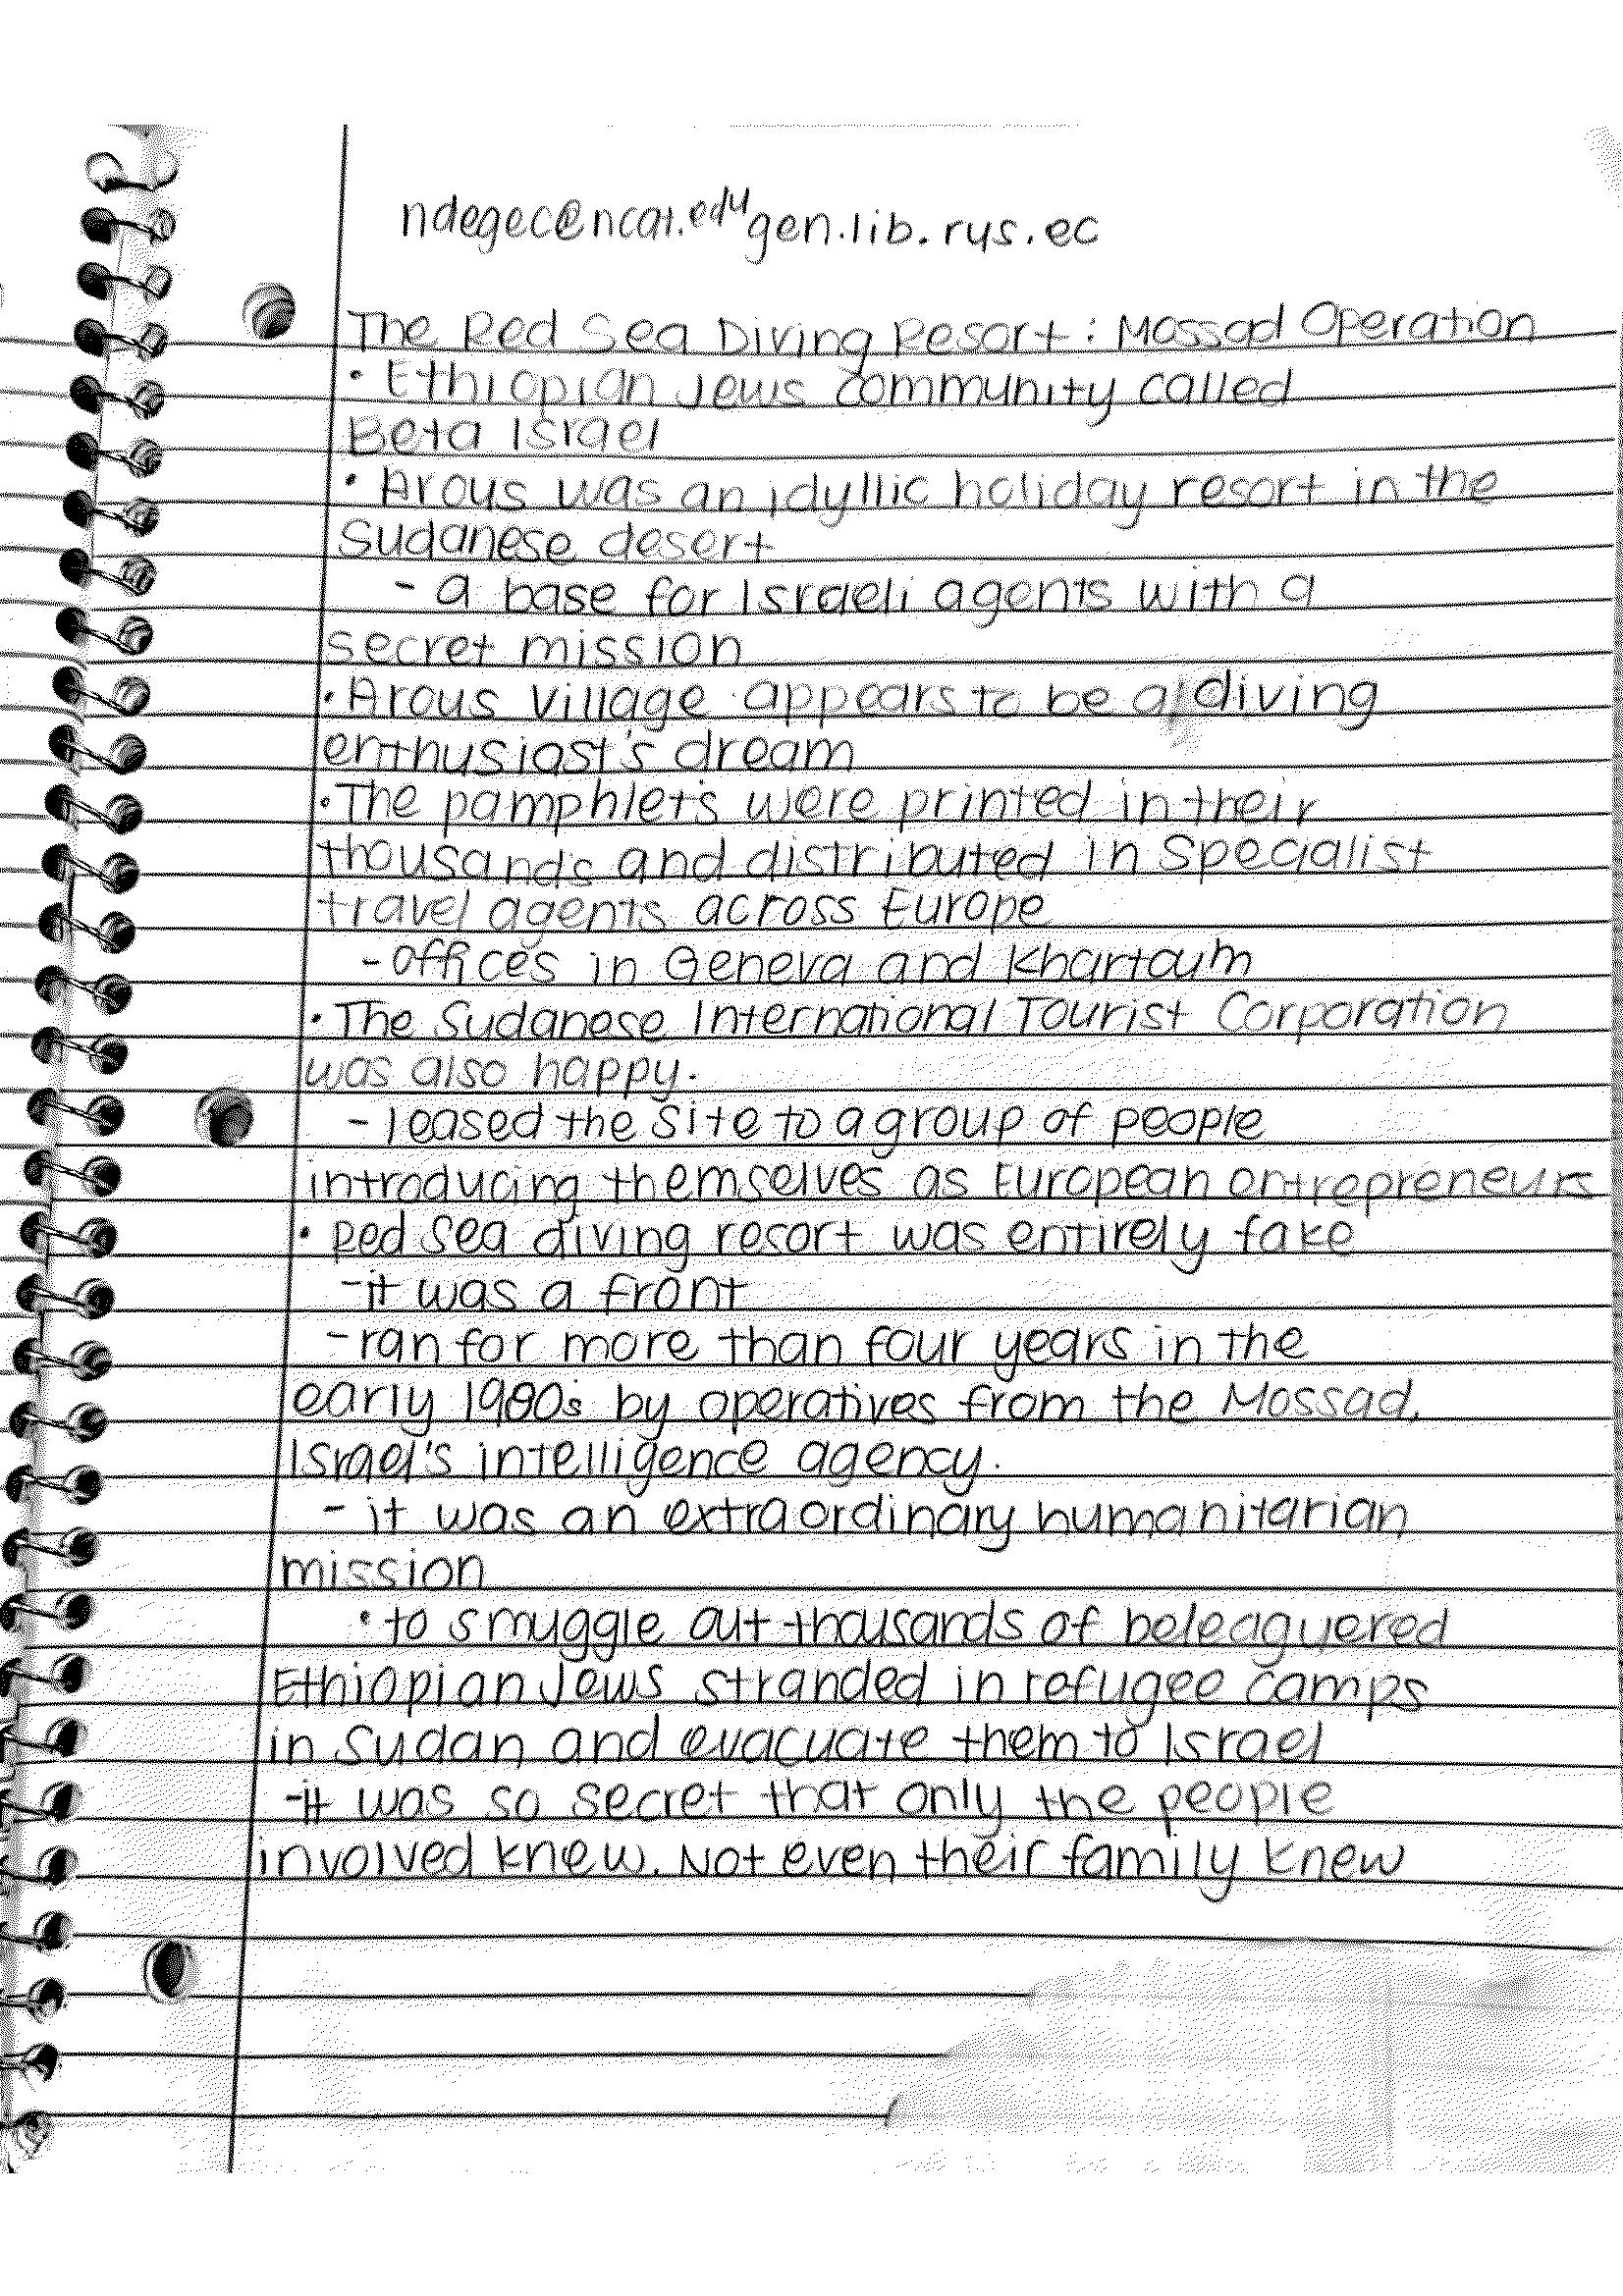 ndegec@ncat.edu gen.lib.rus.ec
The Red Sea Diving Resort: Mossad Operation
• Ethiopian Jews community called
Beta Israel
• Arous was an idyllic holiday resort in the
Sudanese desert
- a base for Israeli agents with a
secret mission
• Arous village appears to be a diving
enthusiast's dream
• The pamphlets were printed in their
thousands and distributed in Specialist
travel agents across Europe
- offices in Geneva and Khartoum
• The Sudanese International Tourist Corporation
was also happy.
- leased the site to a group of people
introducing themselves as European entrepreneurs
• Red Sea diving resort was entirely fake
- it was a front
- ran for more than four years in the
early 1980s by operatives from the Mossad,
Israel's intelligence agency.
- it was an extraordinary humanitarian
mission
• to smuggle out thousands of beleaguered
Ethiopian Jews stranded in refugee camps
in Sudan and evacuate them to Israel
- it was so secret that only the people
involved knew. Not even their family knew